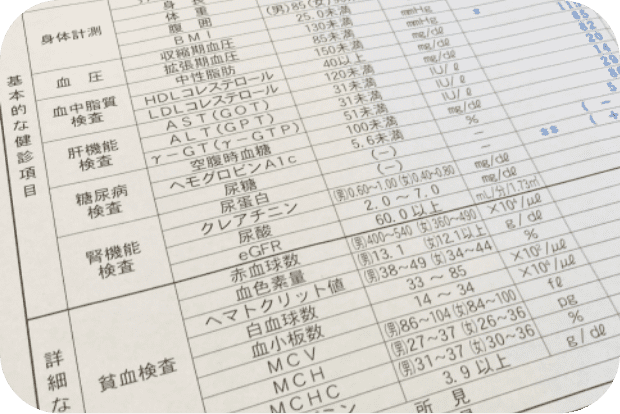 基本的な健診項目
身体計測
体重
腹囲 (男)85(女)
BMI 25.0未満
血圧
収縮期血圧 130未満 mmHg
拡張期血圧 85未満 mmHg
血中脂質検査
中性脂肪 150未満 mg/dl
HDLコレステロール 40以上 mg/dl
LDLコレステロール 120未満 mg/dl
肝機能検査
AST(GOT) 31未満 IU/ℓ
ALT(GPT) 31未満 IU/ℓ
γ-GT(γ-GTP) 51未満 IU/ℓ
糖尿病検査
空腹時血糖 100未満 mg/dl
ヘモグロビンA1c 5.6未満 %
尿糖 (-) -
腎機能検査
尿蛋白 (-) -
クレアチニン (男)0.60~1.00 (女)0.40~0.80 mg/dl
尿酸 2.0~7.0 mg/dl
eGFR 60.0以上 mL/分/1.73㎡
詳細な
貧血検査
赤血球数 (男)400~540 (女)360~490 ×10⁴/μl
血色素量 (男)13.1 (女)12.1以上 g/dl
ヘマトクリット値 (男)38~49 (女)34~44 %
白血球数 33~85 ×10²/μl
血小板数 14~34 ×10⁴/μl
MCV (男)86~104 (女)84~100 fl
MCH (男)27~37 (女)26~36 pg
MCHC (男)31~37 (女)30~36 %
3.9以上 g/dl
所見